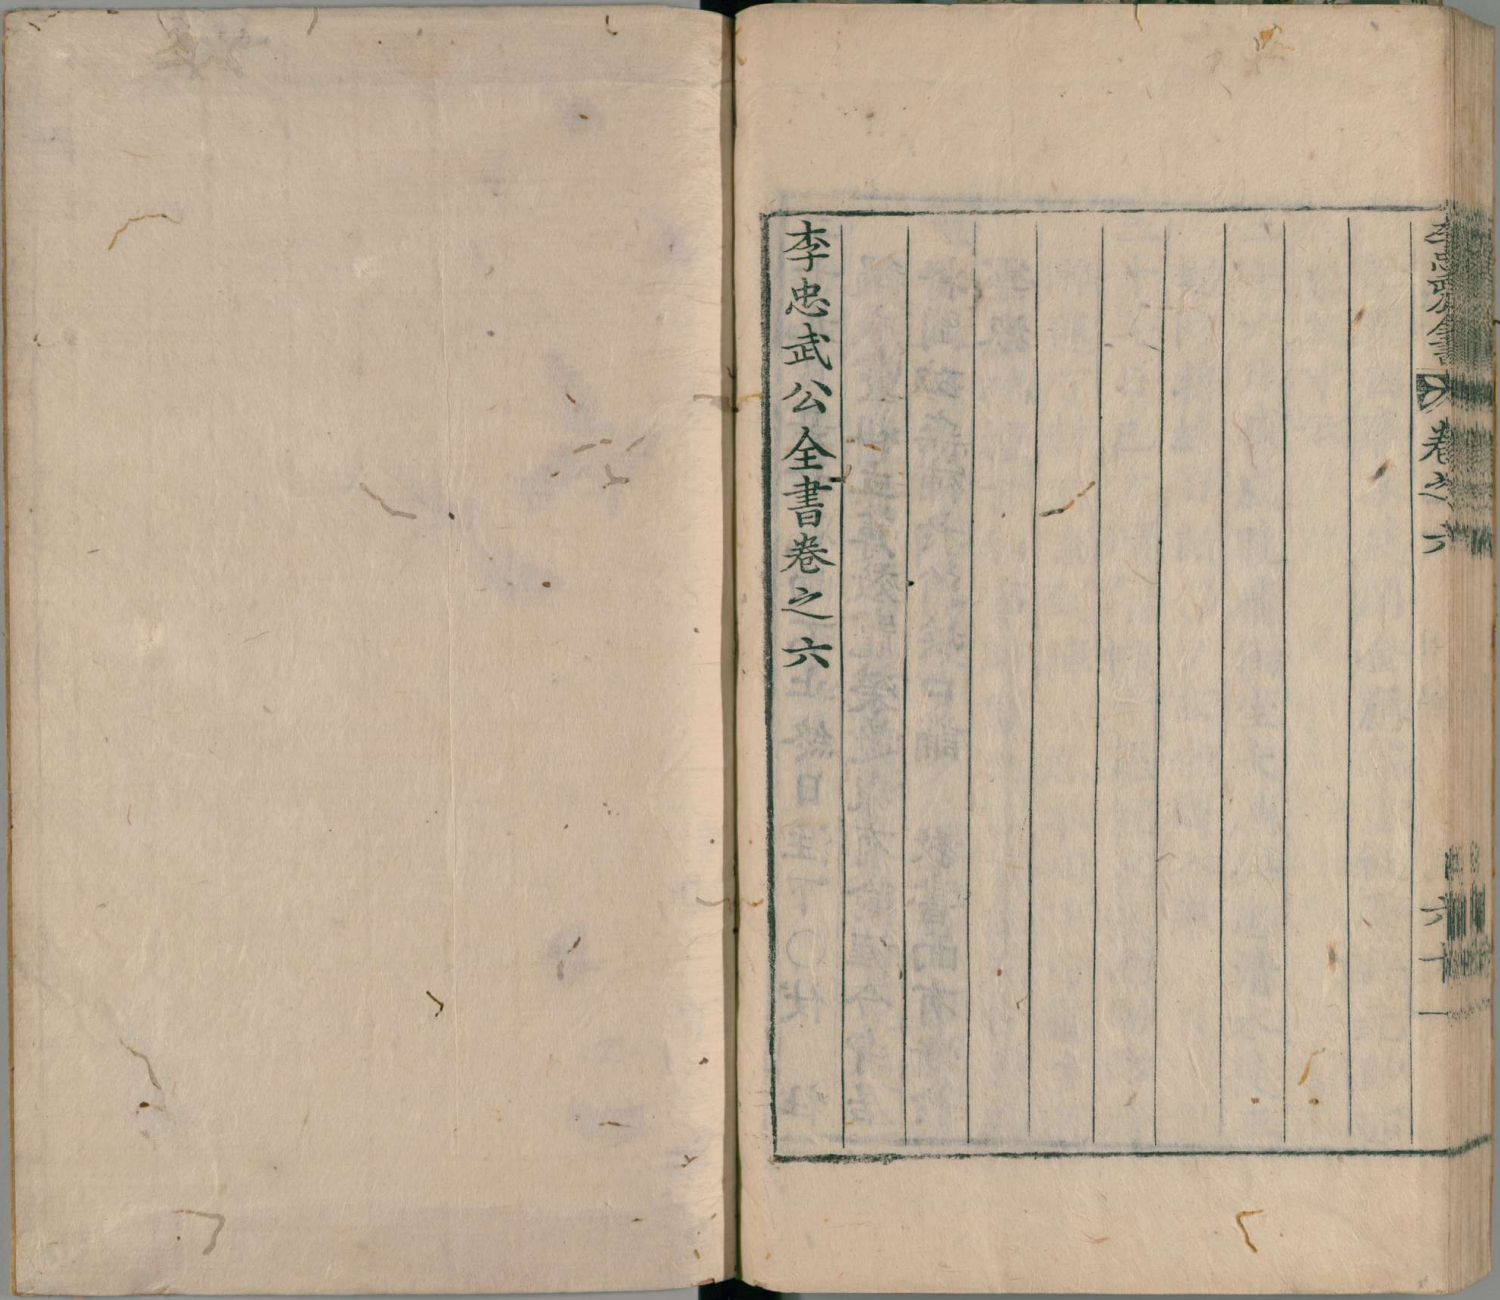 李忠武公全書
卷之六
六十一
李忠武公全書卷之六